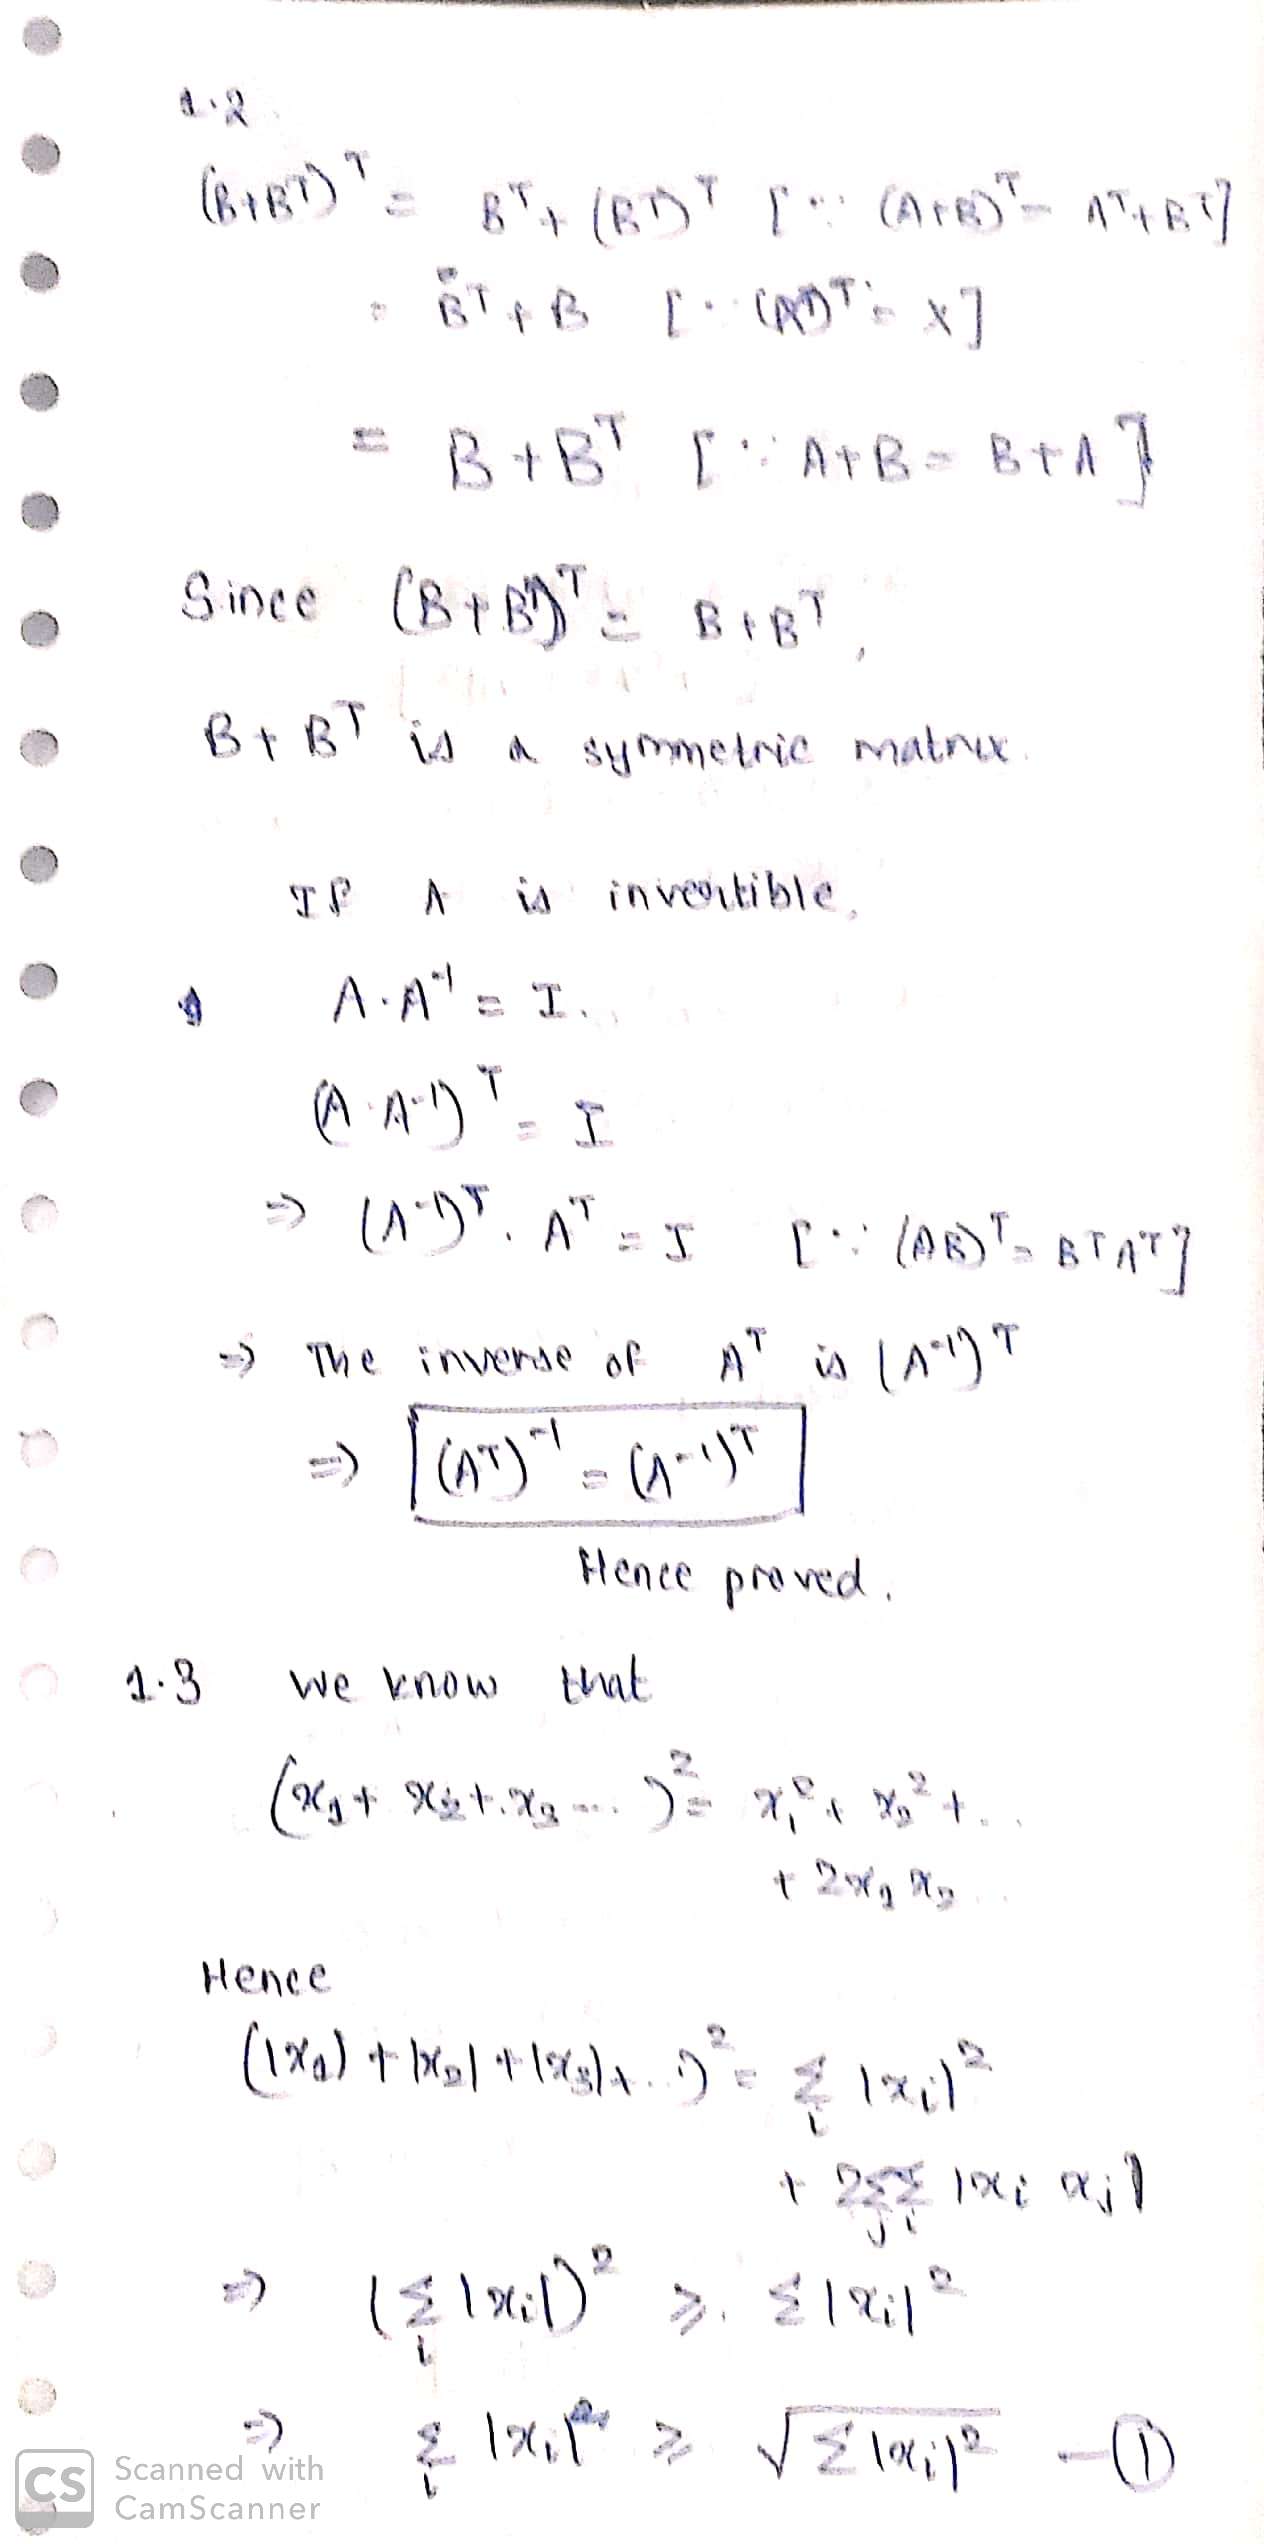 1.2
(B+Bᵀ)ᵀ = Bᵀ + (Bᵀ)ᵀ [∵ (A+B)ᵀ = Aᵀ+Bᵀ]
= Bᵀ + B [∵ (Aᵀ)ᵀ = X]
= B + Bᵀ [∵ A+B = B+A]
Since (B+Bᵀ)ᵀ = B+Bᵀ,
B+Bᵀ is a symmetric matrix.
If A is invertible,
A·A⁻¹ = I.
(A·A⁻¹)ᵀ = I
⇒ (A⁻¹)ᵀ · Aᵀ = I [∵ (AB)ᵀ = BᵀAᵀ]
⇒ The inverse of Aᵀ is (A⁻¹)ᵀ
⇒ (Aᵀ)⁻¹ = (A⁻¹)ᵀ
Hence proved.
1.3 We know that
(x₁ + x₂ + x₃ ....)² = x₁² + x₂² + ..
+ 2x₁x₂ ...
Hence
(|x₁| + |x₂| + |x₃| + ..)² = Σᵢ |xᵢ|²
+ 2 Σⱼ Σᵢ |xᵢ xⱼ|
⇒ (Σᵢ |xᵢ|)² ≥ Σ |xᵢ|²
⇒ Σᵢ |xᵢ| ≥ √(Σ |xᵢ|²) — ①
CS Scanned with
CamScanner